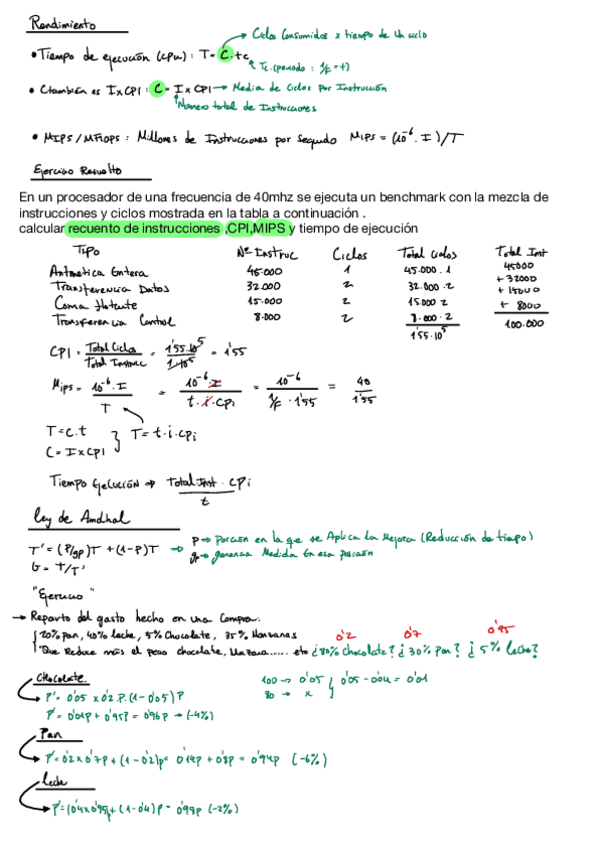 Rendimiento
Ciclos Consumidos x tiempo de un ciclo
• Tiempo de ejecución (cpu) : T = C · tc
Tc (periodo : 1/F = t)
• C también es I x CPI : C = I x CPI → Media de Ciclos por Instrucción
Número total de Instrucciones
• MIPS / MFlOPS : Millones de Instrucciones por Segundo MIPS = (10⁻⁶ · I) / T
Ejercicio Resuelto
En un procesador de una frecuencia de 40mhz se ejecuta un benchmark con la mezcla de
instrucciones y ciclos mostrada en la tabla a continuación .
calcular recuento de instrucciones ,CPI,MIPS y tiempo de ejecución
Tipo Nº Instruc Ciclos Total ciclos Total Inst
Aritmetica Entera 45.000 1 45.000 · 1 45000
Transferencia Datos 32.000 2 32.000 · 2 + 32000
Coma flotante 15.000 2 15.000 2 + 15000
Transferencia Control 8.000 2 8.000 · 2 + 8000
1'55·10⁵ 100.000
CPI = Total Ciclos / Total Instrucc = 1'55·10⁵ / 1·10⁵ = 1'55
Mips = 10⁻⁶ · I / T = 10⁻⁶ · I / t · i · CPi = 10⁻⁶ / 1/F · 1'55 = 40 / 1'55
T = c.t
C = I x CPI } T = t · i · cpi
Tiempo Ejecución → Total Inst · CPi / t
Ley de Amdhal
T' = (P/gp)T + (1-P)T → p → Porcion en la qe se Aplica la Mejora (Reducción de tiempo)
g → ganancia Medida En esa porcion
G = T/T'
"Ejercicio"
→ Reparto del gasto hecho en una Compra:
20% pan, 40% leche, 5% Chocolate, 35% Manzanas 0'2 0'7 0'95
"Que Reduce más el peso chocolate, ..... etc ¿80% Chocolate? ¿30% Pan? ¿5% leche?
Chocolate. 100 → 0'05
P' = 0'05 x 0'2·P·(1-0'05)P 80 → x } 0'05 - 0'04 = 0'01
P' = 0'01p + 0'95P = 0'96P → (-4%)
Pan
P' = 0'2 x 0'7p + (1-0'2)p = 0'14p + 0'8p = 0'94p (-6%)
leche
P' = (0'4x0'95)p + (1-0'4)P = 0'98p (-2%)